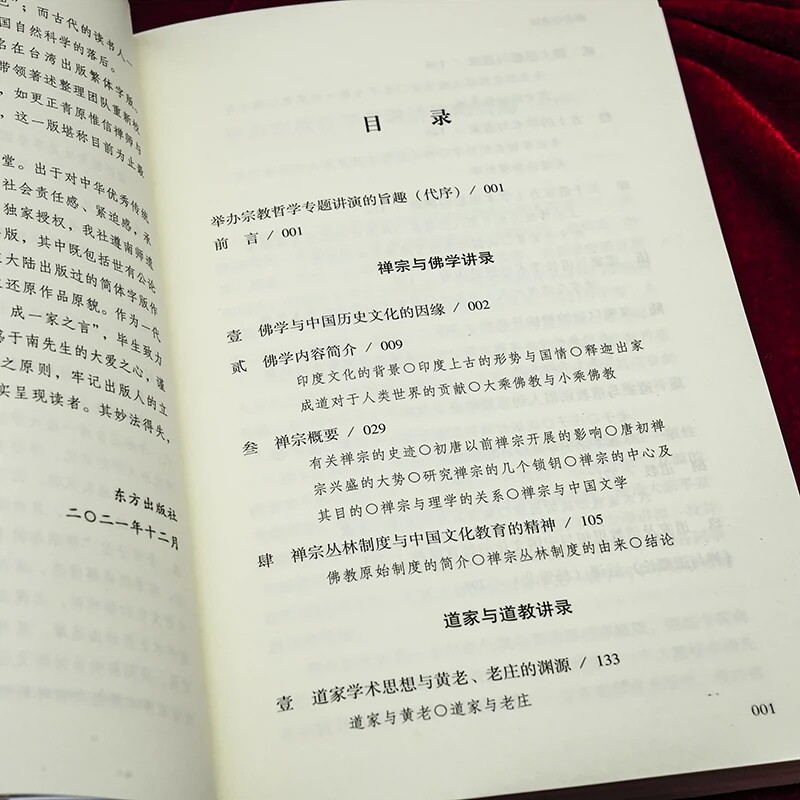 ”；而古代的读书人一
国自然科学的落后。
名在台湾出版繁体字版。
带领著述整理团队重新校
，如更正青原惟信禅师与
，这一版堪称目前为止最
堂。出于对中华优秀传统
社会责任感、紧迫感，承
独家授权，我社遵南师遗
版，其中既包括世有公讼
大陆出版过的简体字版作
还原作品原貌。作为一代
成一家之言”，毕生致力
感于南先生的大爱之心，谨
之原则，牢记出版人的立
实呈现读者。其妙法得失，
东方出版社
二〇二一年十二月
目 录
举办宗教哲学专题讲演的旨趣（代序）/ 001
前 言 / 001
禅宗与佛学讲录
壹 佛学与中国历史文化的因缘 / 002
贰 佛学内容简介 / 009
印度文化的背景〇印度上古的形势与国情〇释迦出家
成道对于人类世界的贡献〇大乘佛教与小乘佛教
叁 禅宗概要 / 029
有关禅宗的史迹〇初唐以前禅宗开展的影响〇唐初禅
宗兴盛的大势〇研究禅宗的几个锁钥〇禅宗的中心及
其目的〇禅宗与理学的关系〇禅宗与中国文学
肆 禅宗丛林制度与中国文化教育的精神 / 105
佛教原始制度的简介〇禅宗丛林制度的由来〇结论
道家与道教讲录
壹 道家学术思想与黄老、老庄的渊源 / 133
道家与黄老〇道家与老庄
001